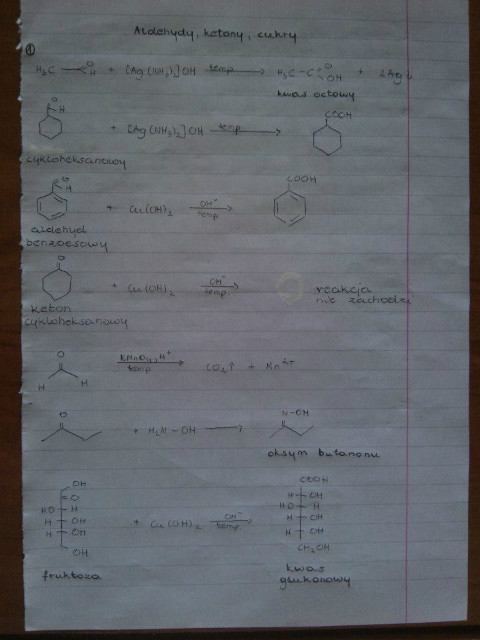 Aldehydy, ketony, cukry
①
H₃C + [Ag(NH₃)₂]OH temp. H₃C-C O OH + 2Ag↓
O H
kwas octowy
O H + [Ag(NH₃)₂]OH temp COOH
cykloheksanowy
O H + Cu(OH)₂ OH⁻ temp. COOH
aldehyd
benzoesowy
O + Cu(OH)₂ OH⁻ temp. reakcja
nie zachodzi
keton
cykloheksanowy
O H H KMnO₄, H⁺ temp CO₂↑ + Mn²⁺
O + H₂N-OH N-OH
oksym butanonu
OH COOH
=O H OH
HO H HO H
H OH + Cu(OH)₂ OH⁻ temp. H OH
H OH H OH
OH CH₂OH
fruktoza kwas
glukonowy